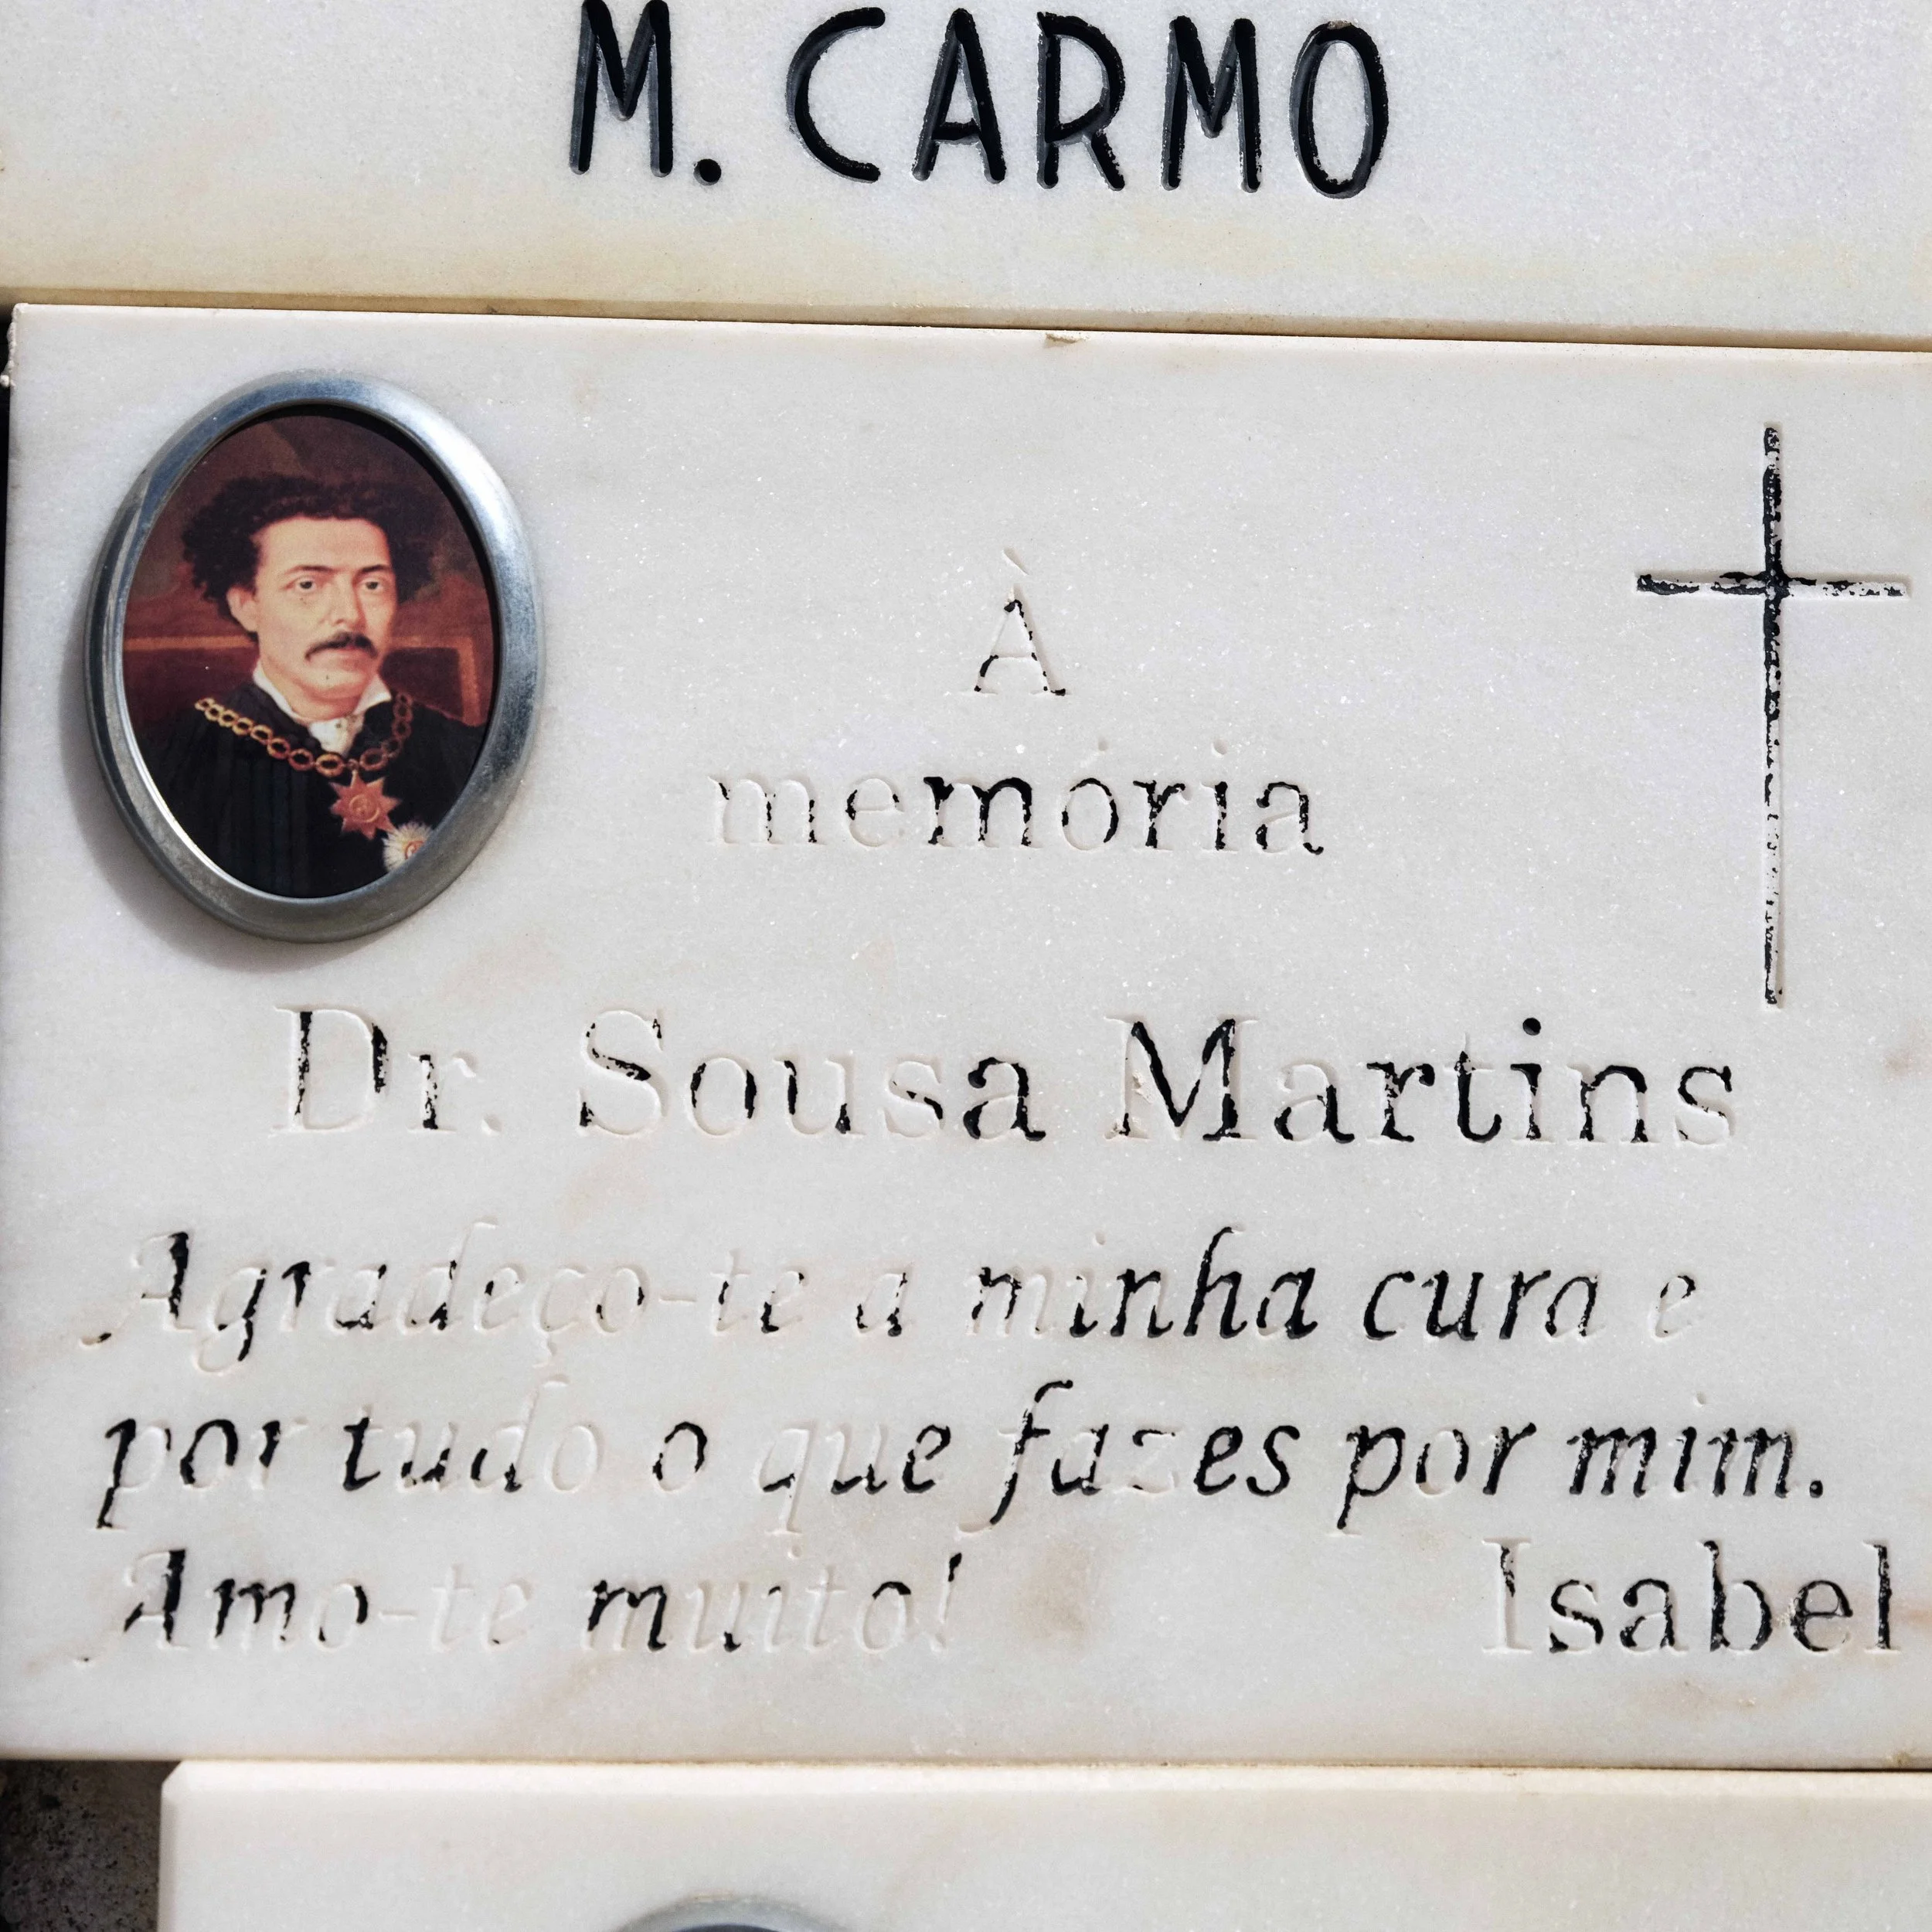 M. CARMO
À
memória
Dr. Sousa Martins
Agradeço-te a minha cura e
por tudo o que fazes por mim.
Amo-te muito!
Isabel